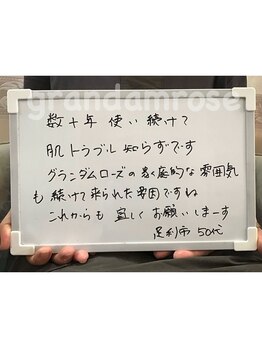 grandamrose
数十年 使い続けて
肌トラブル知らずです
グランダムローズの家庭的な雰囲気
も続けて来られた要因ですね
これからも宜しくお願いします
足利市 50代